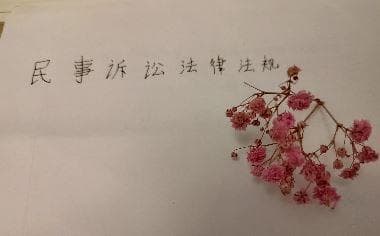 民事诉讼法律法规